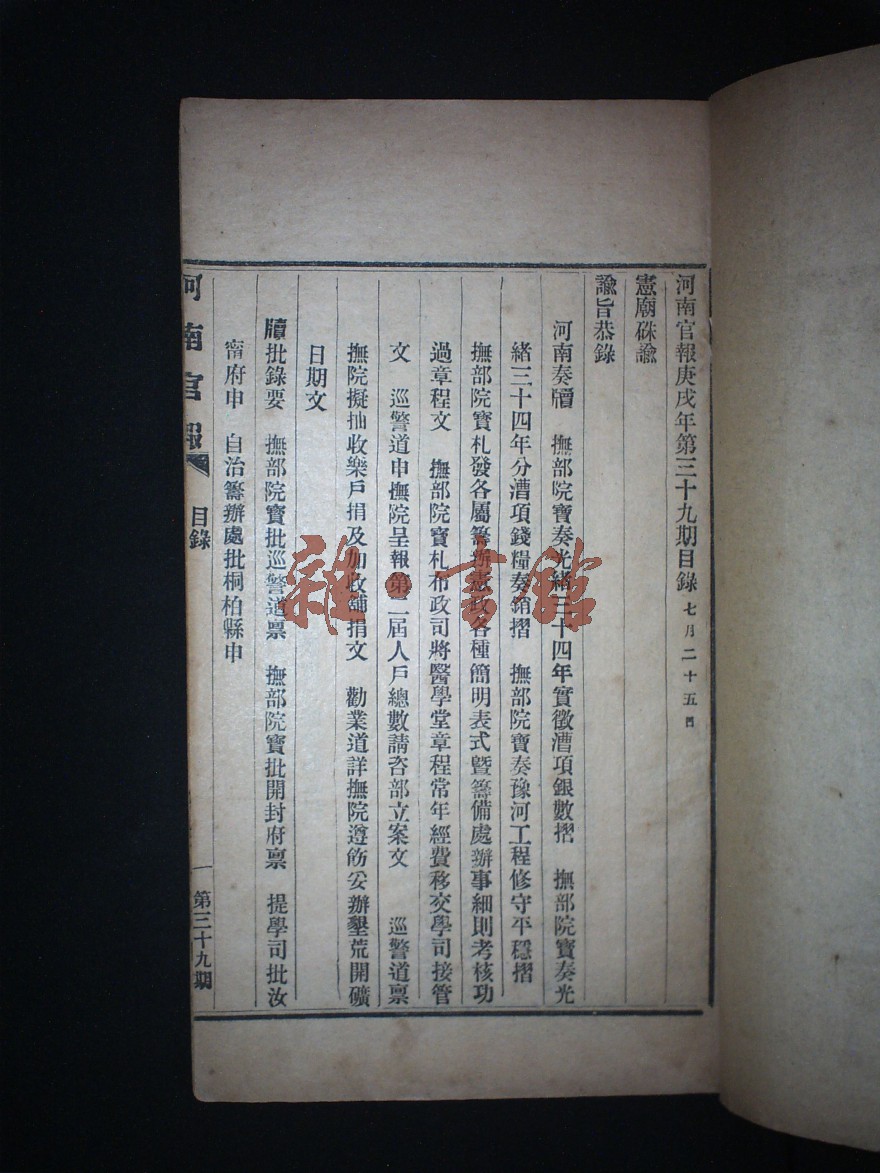 河南官報庚戌年第三十九期目錄 七月二十五日
憲廟硃諭
諭旨恭錄
河南奏牘 撫部院寶奏光緒三十四年實徵漕項銀數摺 撫部院寶奏光
緒三十四年分漕項錢糧奏銷摺 撫部院寶奏豫河工程修守平穩摺
撫部院寶札發各屬籌辦憲政各種簡明表式暨籌備處辦事細則考核功
過章程文 撫部院寶札布政司將醫學堂章程常年經費移交學司接管
文 巡警道申撫院呈報第二屆人戶總數請咨部立案文 巡警道稟
撫院擬抽收樂戶捐及加收舖捐文 勸業道詳撫院遵飭妥辦墾荒開礦
日期文
牘批錄要 撫部院寶批巡警道稟 撫部院寶批開封府稟 提學司批汝
甯府申 自治籌辦處批桐柏縣申
河南官報 目錄 一 第三十九期
雜·書館